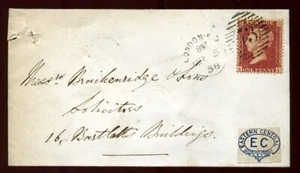 LONDON
58
ONE PENNY
Messrs Braikenridge & Sons
Solicitors
16, Bartletts Buildings.
EASTERN CENTRAL
EC